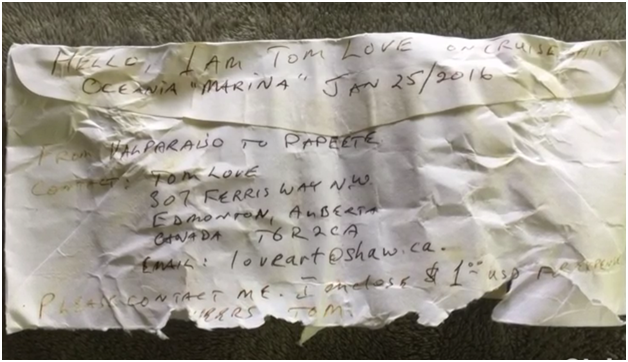 HELLO, I AM TOM LOVE ON CRUISE SHIP
OCEANIA "MARINA" JAN 25/2016
FROM VALPARAISO TO PAPEETE
CONTACT: TOM LOVE
307 FERRIS WAY N.W.
EDMONTON, ALBERTA
CANADA T6R2CA
EMAIL: loveart@shaw.ca.
PLEASE CONTACT ME. I enclose $1.00 USD FOR
CHEERS TOM.